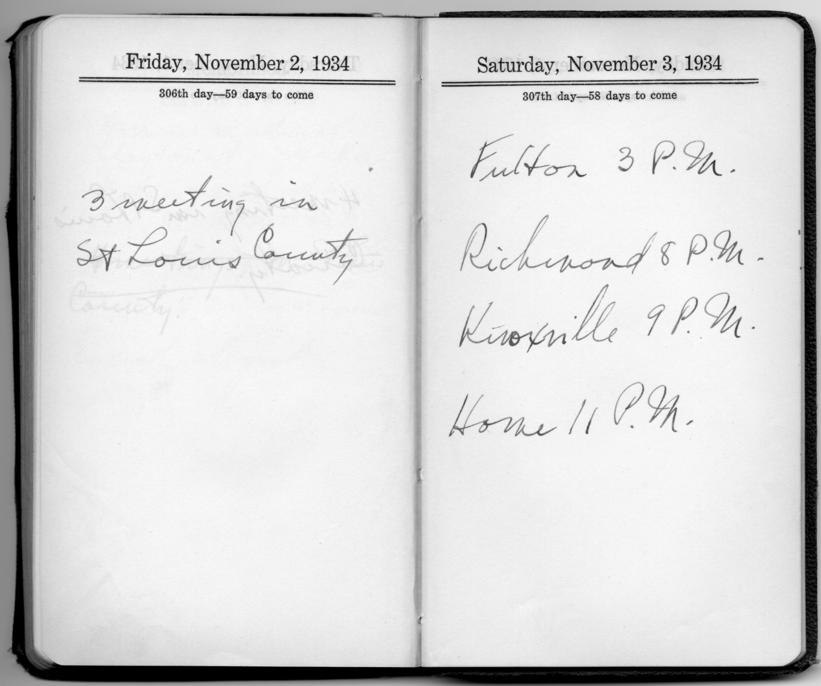 Friday, November 2, 1934
306th day—59 days to come
3 meeting in
St Louis County
Saturday, November 3, 1934
307th day—58 days to come
Fulton 3 P.M.
Richmond 8 P.M.
Knoxville 9 P.M.
Home 11 P.M.